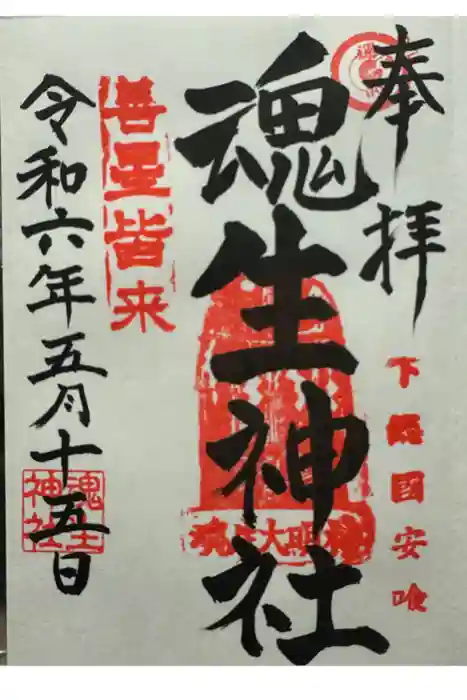 奉拝
下総國安喰
魂生神社
魂生大明神
善星皆来
令和六年五月十五日
魂生
神社